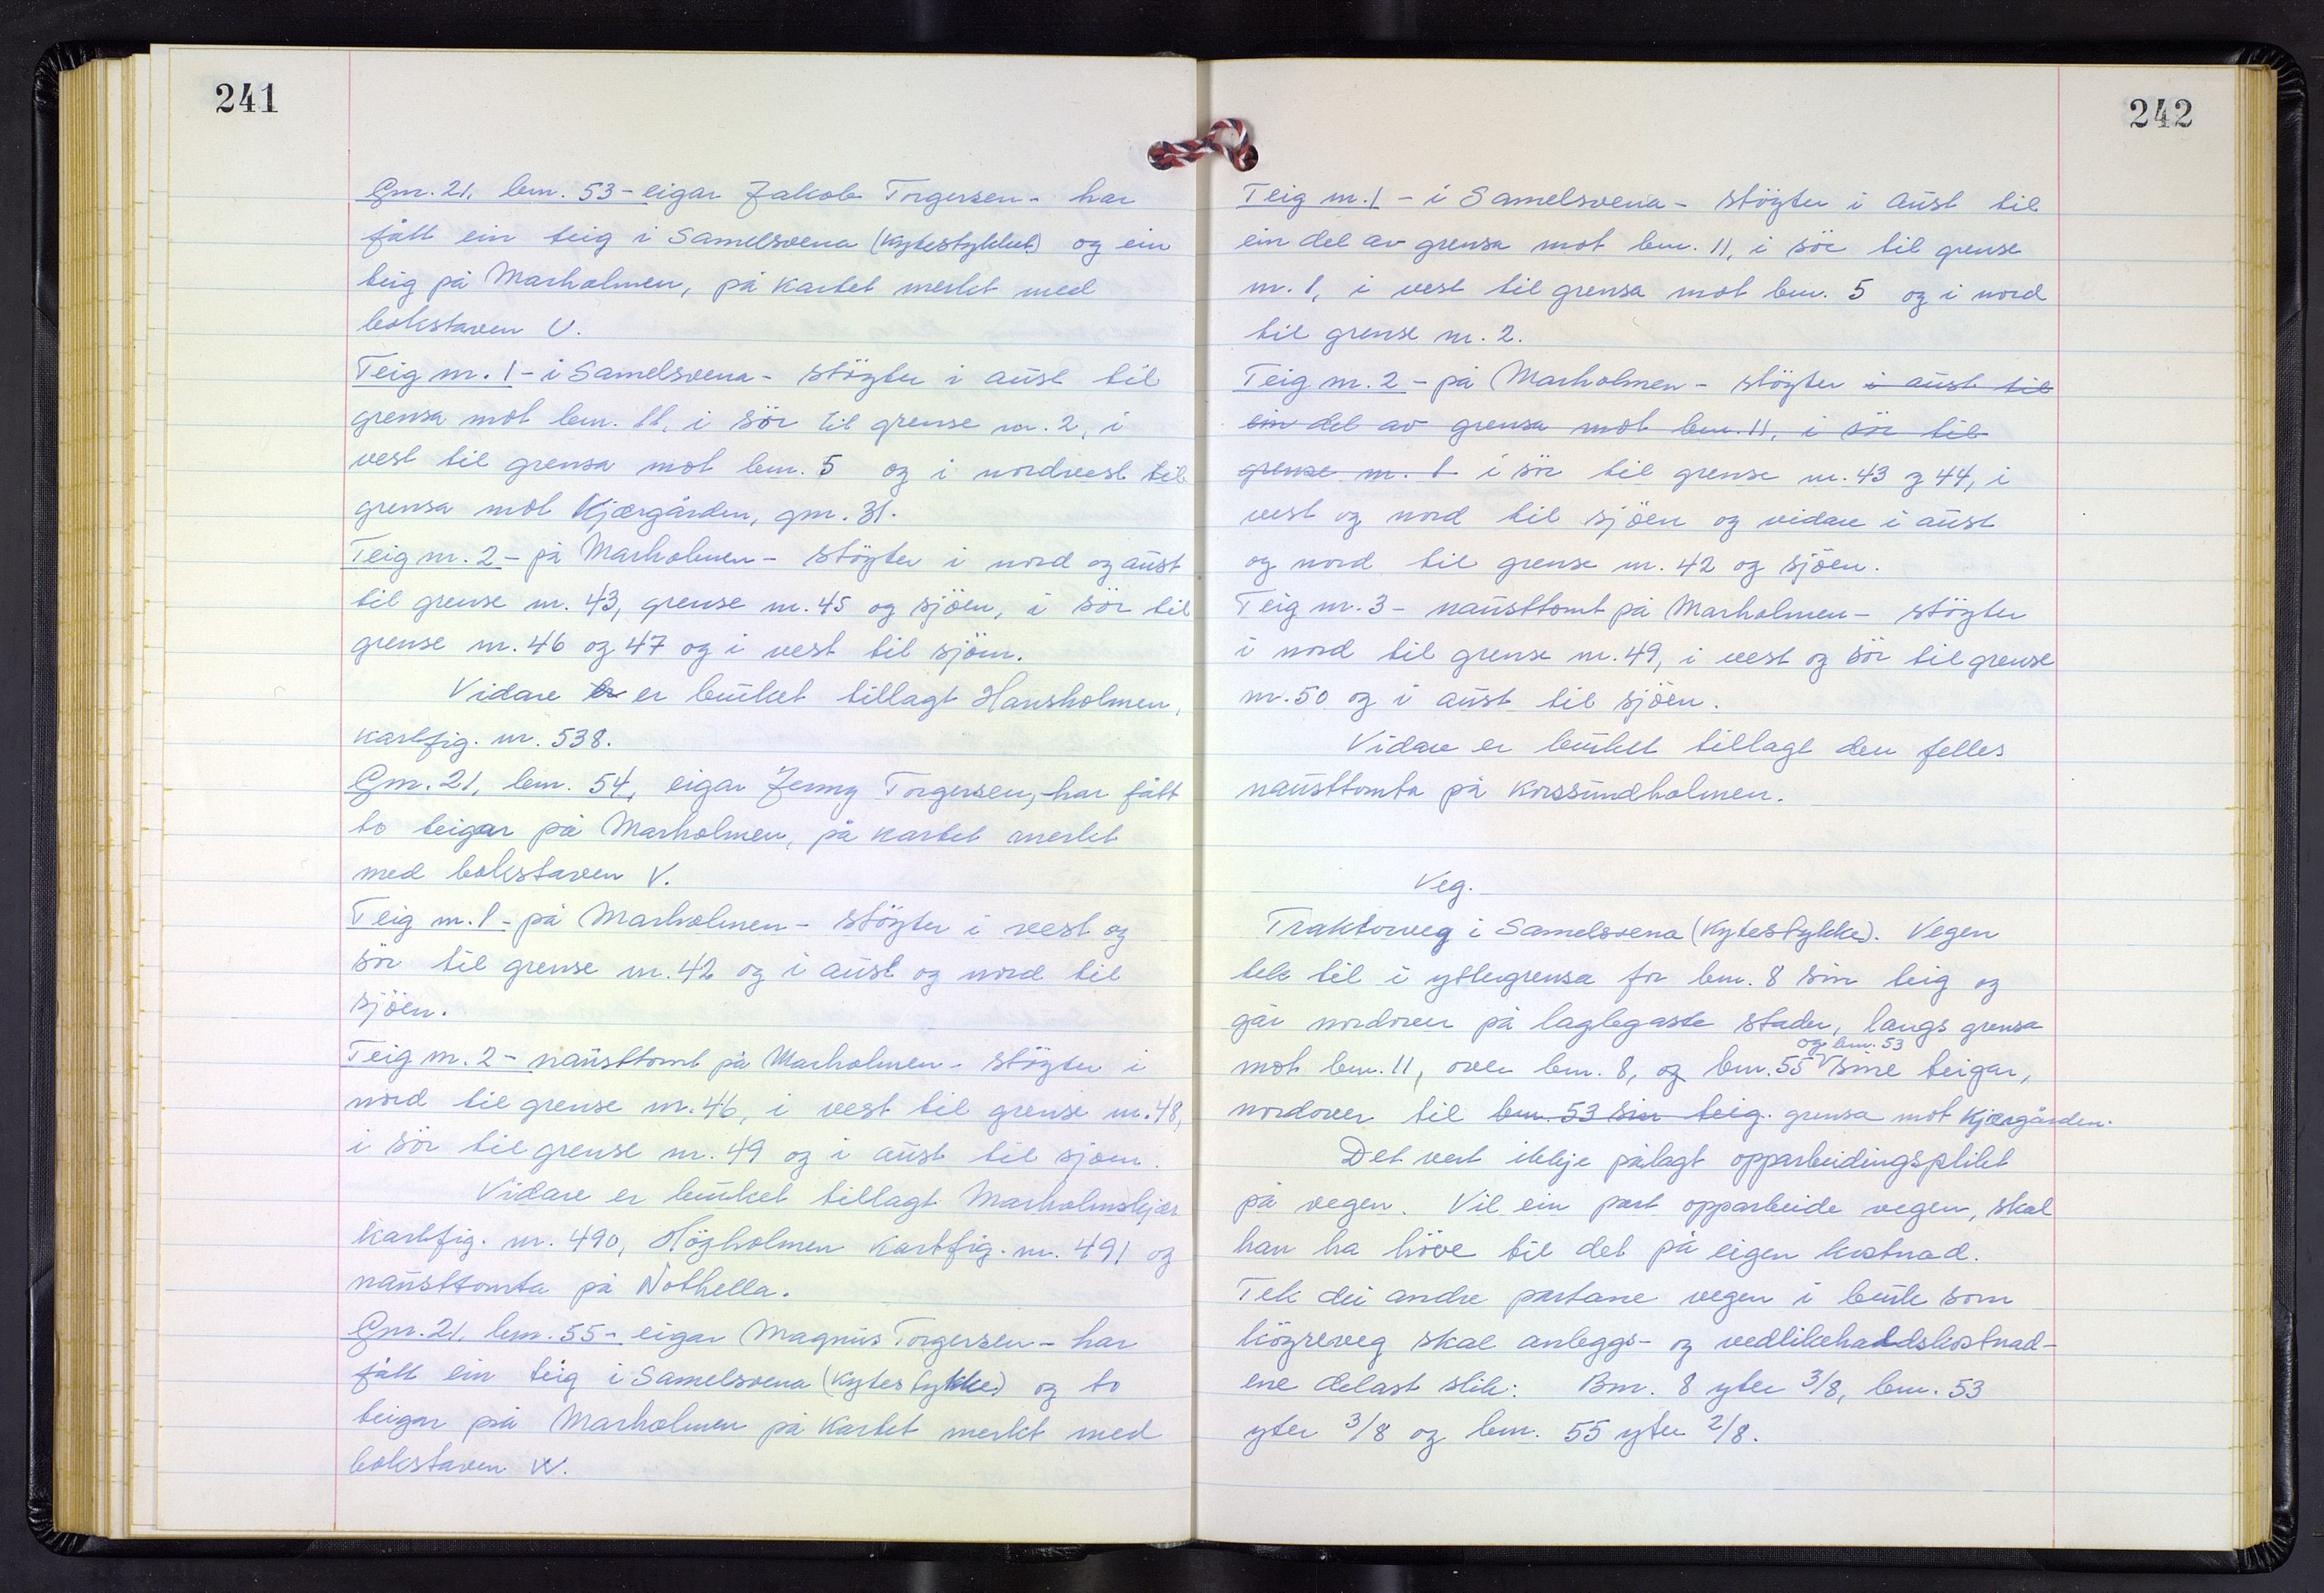 241
Gnr. 21, bnr. 53 - eigar Jakob Torgersen - har
fått ein teig i Samelsvena (Kytestykket) og ein
teig på Marholmen, på kartet merkt med
bokstaven U.
Teig nr. 1 - i Samelsvena - støyter i aust til
grensa mot bnr. 11, i sør til grense nr. 2, i
vest til grensa mot bnr. 5 og i nordvest til
grensa mot Kjærgården, gnr. 31.
Teig nr. 2 - på Marholmen - støyter i nord og aust
til grense nr. 43, grense nr. 45 og sjøen, i sør til
grense nr. 46 og 47 og i vest til sjøen.
Vidare er bruket tillagt Hansholmen,
kartfig. nr. 538.
Gnr. 21, bnr. 54, eigar Jenny Torgersen, har fått
to teigar på Marholmen, på kartet merkt
med bokstaven V.
Teig nr. 1 - på Marholmen - støyter i vest og
sør til grense nr. 42 og i aust og nord til
sjøen.
Teig nr. 2 - nausttomt på Marholmen - støyter i
nord til grense nr. 46, i vest til grense nr. 48,
i sør til grense nr. 49 og i aust til sjøen.
Vidare er bruket tillagt Marholmskjær
kartfig. nr. 490, Høgholmen kartfig. nr. 491 og
nausttomta på Nothella.
Gnr. 21, bnr. 55 - eigar Magnus Torgersen - har
fått ein teig i Samelsvena (Kytestykke) og to
teigar på Marholmen på kartet merkt med
bokstaven W.
242
Teig nr. 1 - i Samelsvena - støyter i aust til
ein del av grensa mot bnr. 11, i sør til grense
nr. 1, i vest til grensa mot bnr. 5 og i nord
til grense nr. 2.
Teig nr. 2 - på Marholmen - støyter i aust til
ein del av grensa mot bnr. 11, i sør til
grense nr. 1 i sør til grense nr. 43 og 44, i
vest og nord til sjøen og vidare i aust
og nord til grense nr. 42 og sjøen.
Teig nr. 3 - nausttomt på Marholmen - støyter
i nord til grense nr. 49, i vest og sør til grense
nr. 50 og i aust til sjøen.
Vidare er bruket tillagt den felles
nausttomta på Korssundholmen.
Veg.
Traktorveg i Samelsvena (Kytestykke). Vegen
tek til i yttergrensa for bnr. 8 sin teig og
går nordover på laglegaste stader, langs grensa
og bnr. 53
mot bnr. 11, over bnr. 8, og bnr. 55 sine teigar,
nordover til bnr. 53 sin teig. grensa mot Kjærgården.
Det vert ikkje pålagt opparbeidingsplikt
på vegen. Vil ein part opparbeide vegen, skal
han ha høve til det på eigen kostnad.
Tek dei andre partane vegen i bruk som
køyreveg skal anleggs- og vedlikehaldskostnad-
ene delast slik: Bnr. 8 yter 3/8, bnr. 53
yter 3/8 og bnr. 55 yter 2/8.